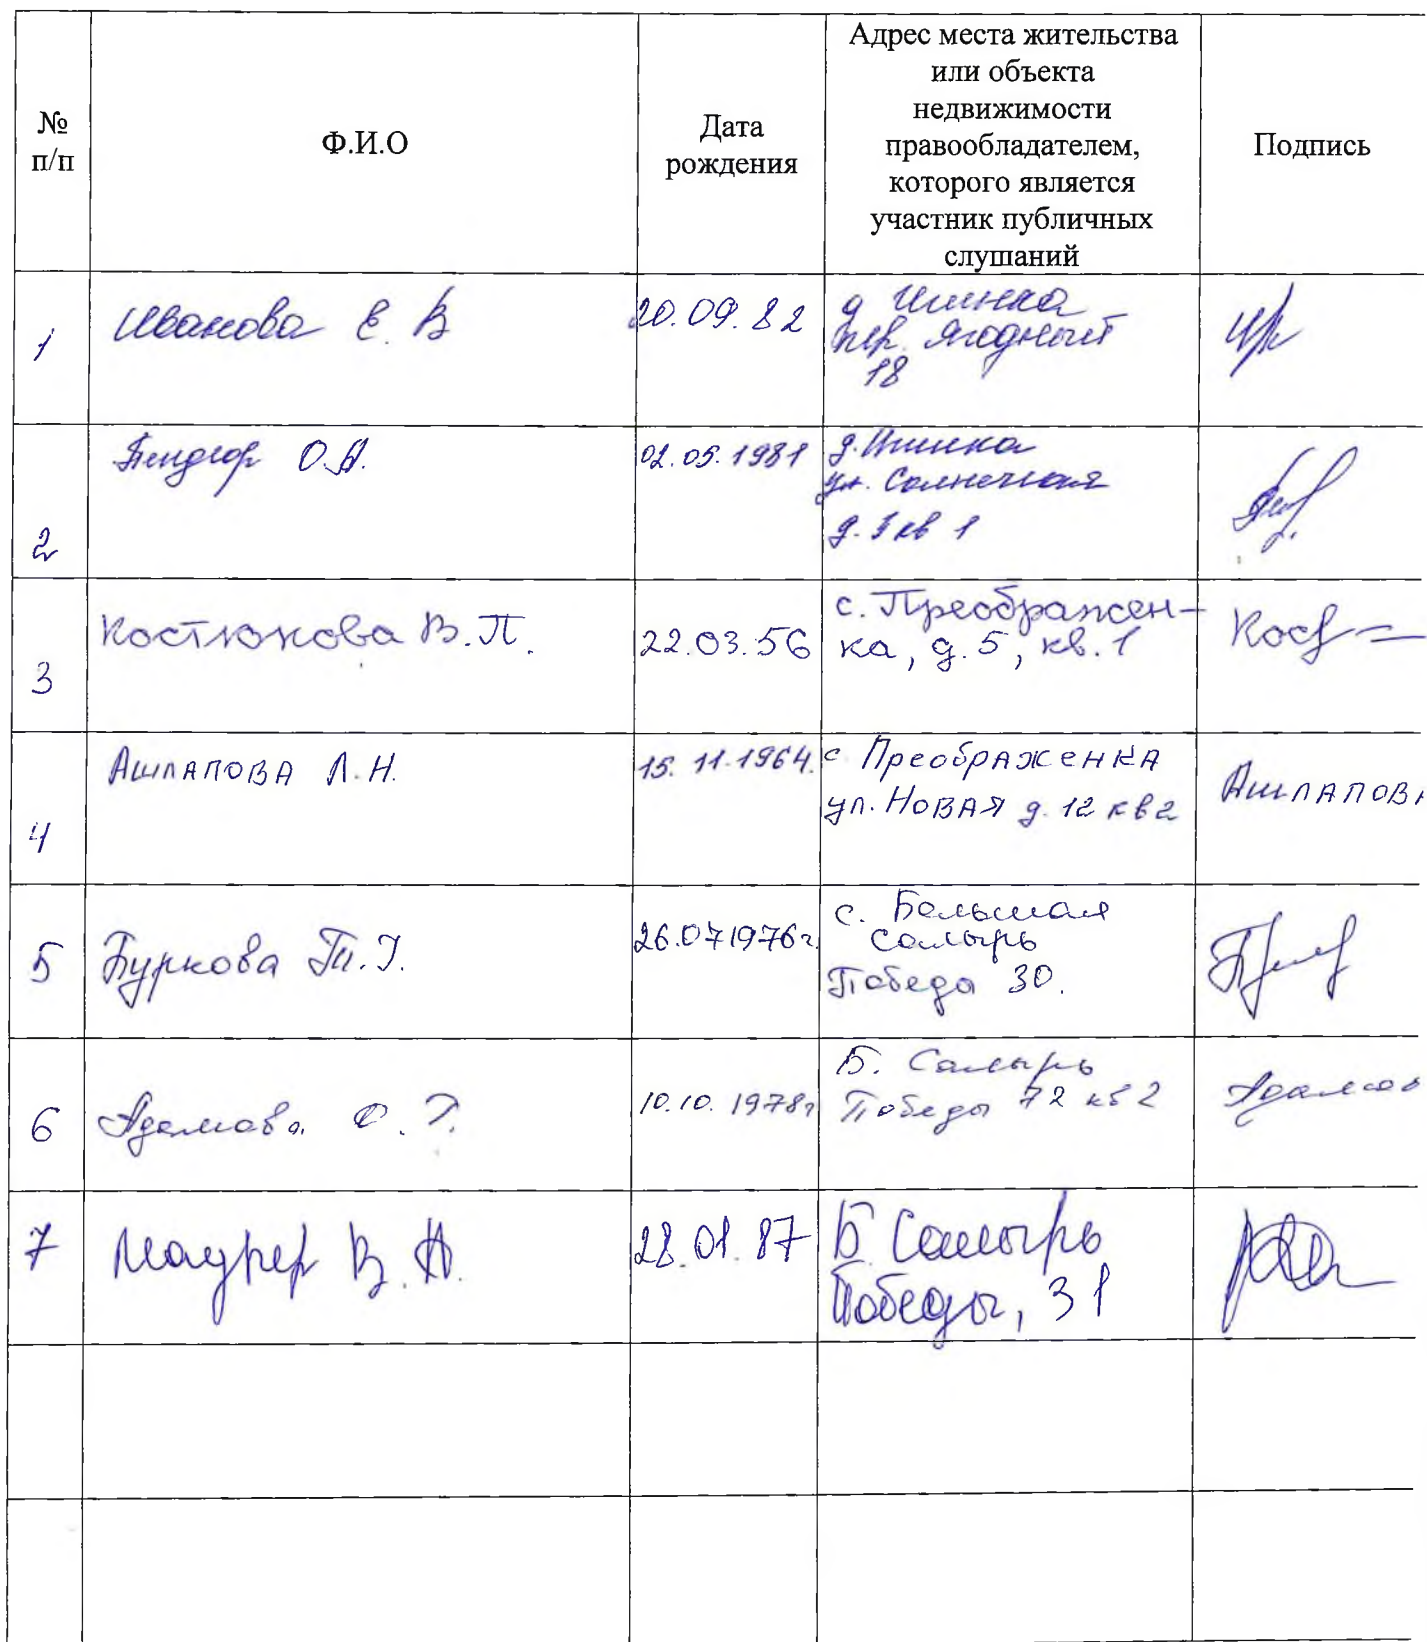 № п/п
Ф.И.О
Дата рождения
Адрес места жительства
или объекта
недвижимости
правообладателем,
которого является
участник публичных
слушаний
Подпись
1
Иванова Е. В
20.09.82
д Ишинка
пер. Ягодный
18
2
О.А.
02.05.1981
д. Ишинка
ул. Солнечная
д. кв 1
3
Костюкова В.П.
22.03.56
с. Преображен-
ка, д. 5, кв. 1
4
Ашлапова Л.Н.
15.11.1964.
с Преображенка
ул. Новая д. 12 кв 2
Ашлапова
5
Буркова Т.Г.
26.07 1976г.
с. Большая
Салырь
Победа 30.
6
Адамова О. Г.
10.10. 1978г
Б. Салырь
Победы 72 кв 2
Адамов
7
Маурер В. А.
28.01.87
Б Салырь
Победы, 31